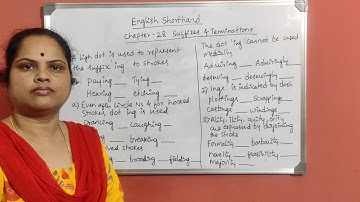 English Shorthand
Chapter - 28 Suffixes & Terminations
A light dot is used to represent
the suffix ing to strokes
Paying Tying
Hearing Etching
a) Even after Circle Ns & for hooked
strokes dot ing is used
Dancing Coughing
breaking
strokes
broading folding
The dot 'ing cannot be used
Medially
Admiring Admiringly
deserving deservingly
2) 'ings is indicated by dash
plottings Scrapings
Castings Windings
3) Ality, ility, arity, ority
are expressed by disjoining
the stroke
Formality barbarity
novelty feasibility
Majority